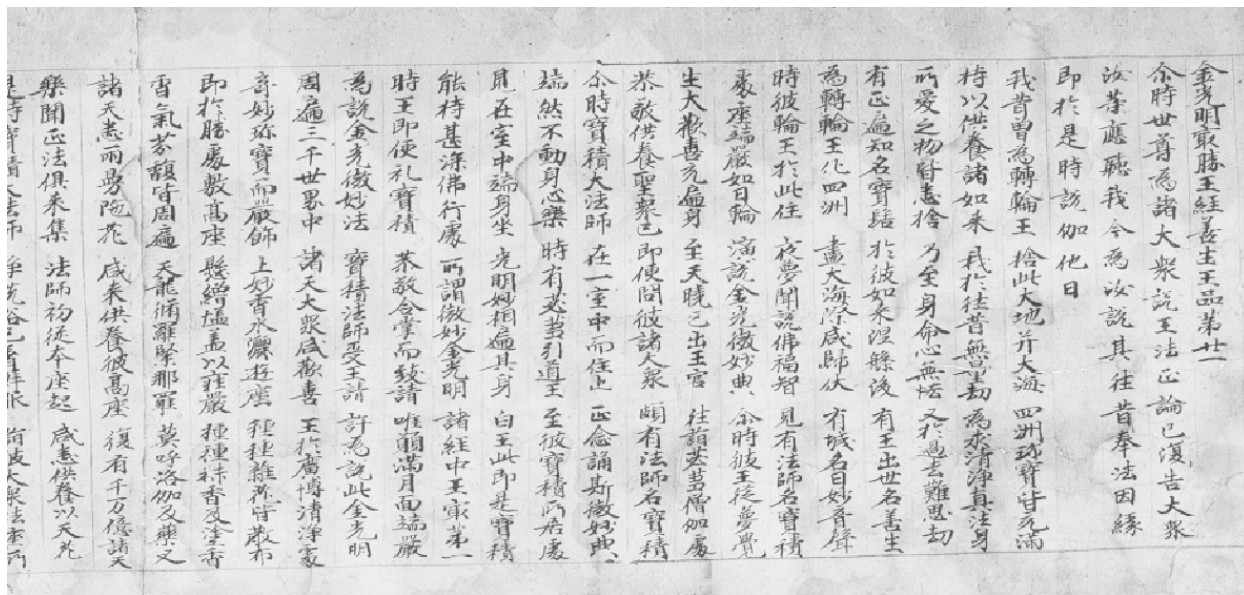 金光明最勝王經善生王品第廿一
尒時世尊為諸大衆說王法正論已復告大衆
汝等應聽我今為汝說其往昔奉法因緣
即於是時說伽他曰
我昔曽為轉輪王 捨此大地并大海 四洲珎寶皆充滿
持以供養諸如来 我於往昔無量劫 為求清淨真法身
所愛之物皆悉捨 乃至身命心無恡 又於過去難思劫
有正遍知名寶髻 於彼如来涅槃後 有王出世名善生
為轉輪王化四洲 盡大海際咸歸伏 有城名曰妙音聲
時彼輪王於此住 夜夢聞說佛福智 見有法師名寶積
處座端嚴如日輪 演說金光微妙典 尒時彼王從夢覺
生大歡喜充遍身 至天曉已出王宮 往詣苾芻僧伽處
恭敬供養聖衆已 即便問彼諸大衆 頗有法師名寶積
尒時寶積大法師 在一室中而住止 正念誦斯微妙典
端然不動身心樂 時有苾芻引道王 至彼寶積所居處
見在室中端身坐 光明妙相遍其身 白王此即是寶積
能持甚深佛行處 所謂微妙金光明 諸經中王最第一
時王即便礼寶積 恭敬合掌而致請 唯願滿月面端嚴
為說金光微妙法 寶積法師受王請 許為說此金光明
周遍三千世界中 諸天大衆咸歡喜 王於廣博清淨處
奇妙珎寶而嚴飾 上妙香水灑遊座 種種雜花皆散布
即於勝處敷髙座 懸繒幡盖以莊嚴 種種秣香及塗香
香氣芬馥皆周遍 天龍脩羅緊那羅 莫呼洛伽及藥叉
諸天悉雨曼陁花 咸来供養彼髙座 復有千万億諸天
樂聞正法俱来集 法師初從本座起 咸悉供養以天花
是時寶積大法師 淨洗浴已著鮮服 詣彼大衆法座所